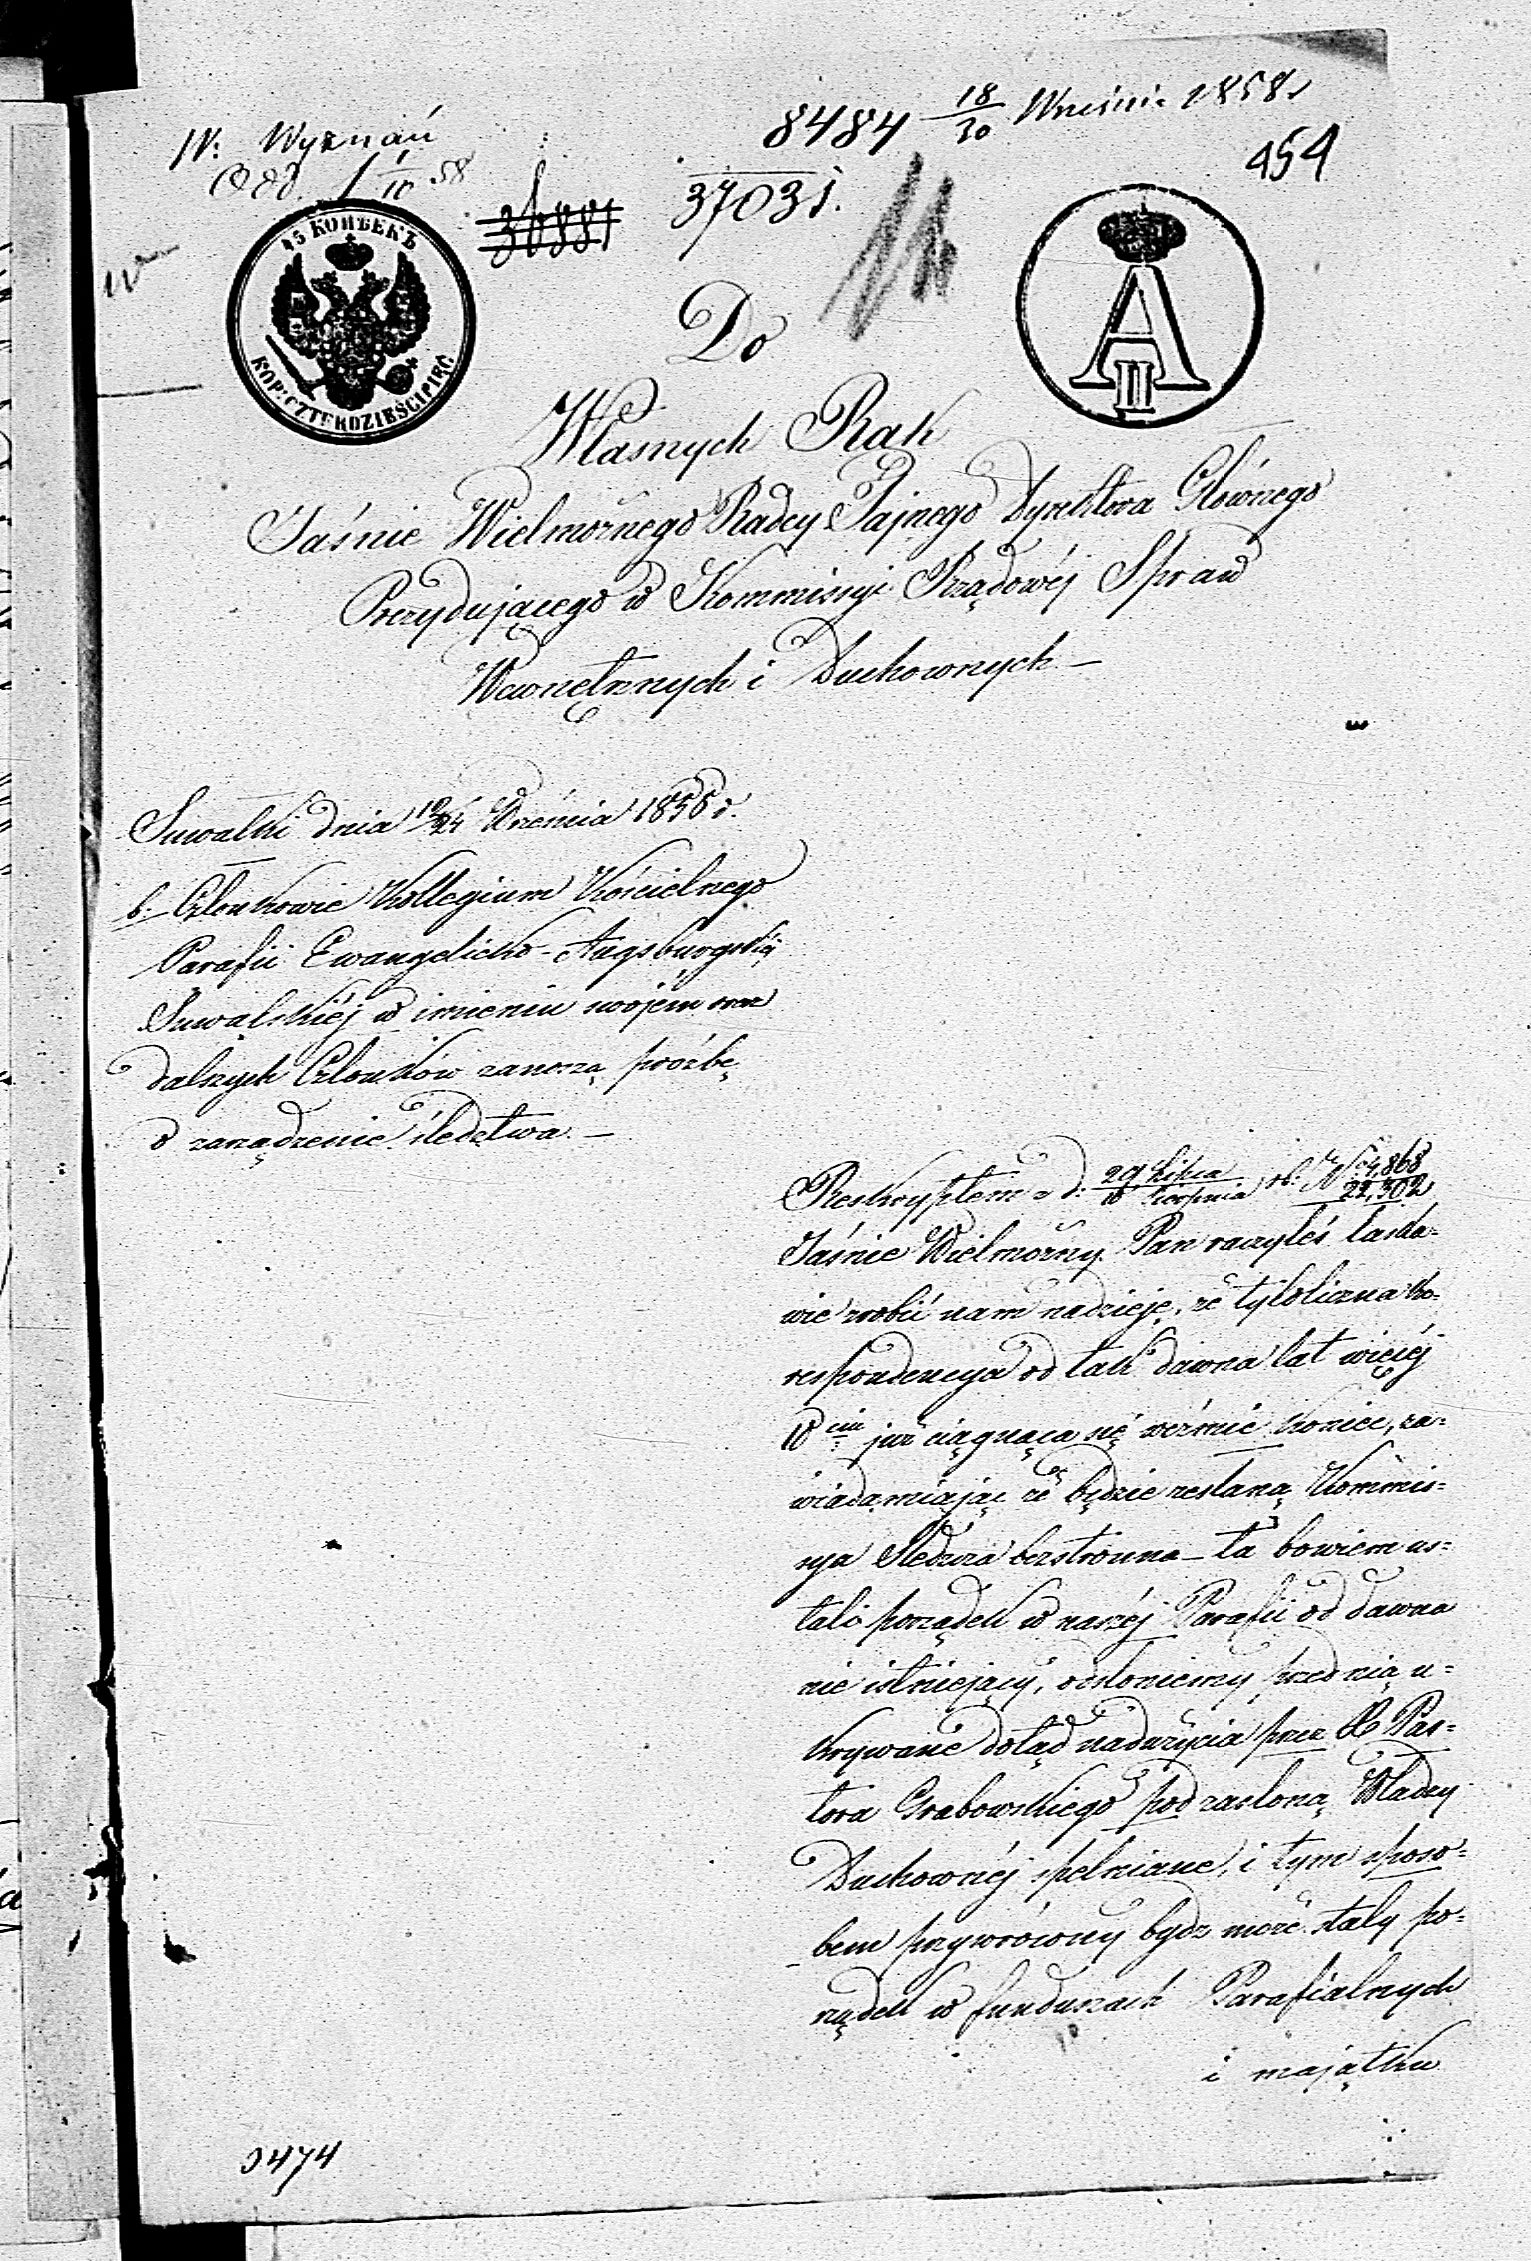 8484 18/30 Wrześni 1858
W: Wyznań
454
58
36881
37031.
45 КОПѢЕКЪ
KOP: CZTERDZIEŚCI PIĘĆ
A II
Do
Własnych Rąk
Jaśnie Wielmożnego Radcy Tajnego Dyrektora Głównego
Prezydującego w Kommissyi Rządowéj Spraw
Wewnętrznych i Duchownych —
Suwałki dnia 12/24 Września 1858 r.
b. Członkowie Kollegium Kościelnego
Parafii Ewangelicko-Augsburgskiéj
Suwalskiéj w imieniu swojém oraz
dalszych Członków zanoszą prośbę
o zarządzenie śledztwa. —
Reskryptem z d. 29 Lipca/10 Sierpnia rb: No 4,868/22,302
Jaśnie Wielmożny Pan raczyłeś łaska-
wie zrobić nam nadzieję, że tyloliczna ko-
respondencya od tak dawna lat więcéj
10ciu już ciągnąca się weźmie koniec, za-
wiadamiając że będzie zesłaną Kommis-
sya Śledcza bezstronna — ta bowiem us-
tali porządek w naszéj Parafii od dawna
nie istniejący, odsłoniemy przed nią u-
krywane dotąd nadużycia przez X Pas-
tora Grabowskiego pod zasłoną Władzy
Duchownéj spełniane, i tym sposo-
bem przywrócony bydz może stały po-
rządek w funduszach Parafialnych
i majątku
0474